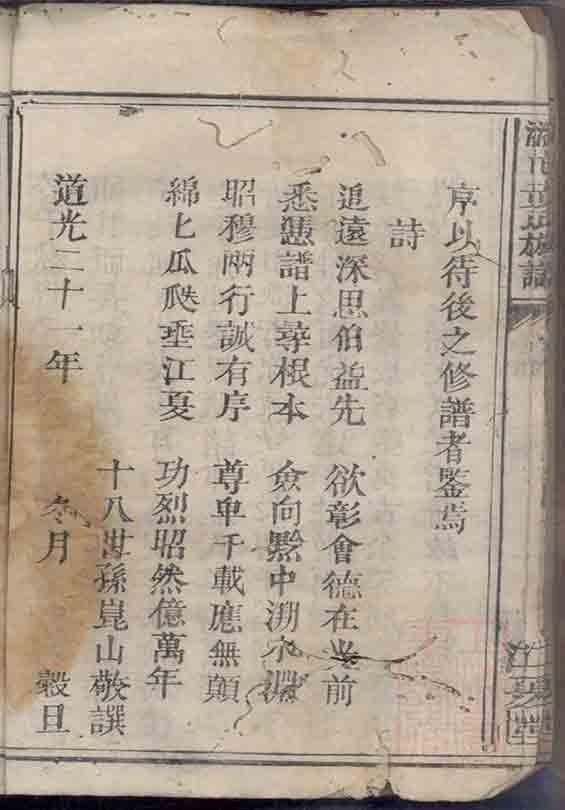 序以待後之修譜者鑒焉
詩
追遠深思伯益先 欲彰會德在当前
悉慿譜上尋根本 僉向黔中溯水淵
昭穆兩行誠有序 尊卑千載應無顛
綿匕瓜瓞埀江夏 功烈昭然億萬年
十八世孫崑山敬譔
道光二十一年 冬月 榖旦
黃氏族譜
江夏堂